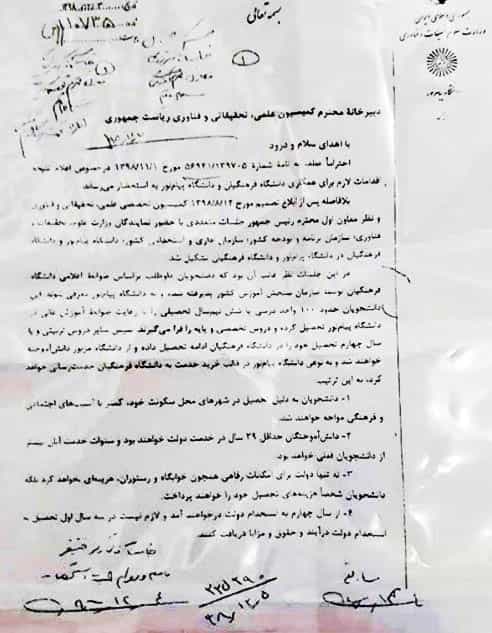 بسمه تعالی
جمهوری اسلامی ایران
وزارت علوم، تحقیقات و فناوری
دانشگاه پیام نور
۱۰۷۳۵
۱
دبیرخانهٔ محترم کمیسیون علمی، تحقیقاتی و فناوری ریاست جمهوری
با اهدای سلام و درود
احتراماً عطف به نامهٔ شمارهٔ ۵۶۹۴۱/۱۳۹۷۰۵ مورخ ۱۳۹۸/۱۱/۱ درخصوص اعلام نتیجه
اقدامات لازم برای همکاری دانشگاه فرهنگیان و دانشگاه پیام‌نور به استحضار می‌رساند:
بلافاصله پس از ابلاغ تصمیم مورخ ۱۳۹۸/۸/۱۲ کمیسیون تخصصی علمی، تحقیقاتی و فناوری
و نظر معاون اول محترم رئیس جمهور جلسات متعددی با حضور نمایندگان وزارت علوم، تحقیقات و
فناوری؛ سازمان برنامه و بودجه کشور؛ سازمان اداری و استخدامی کشور؛ دانشگاه پیام‌نور و دانشگاه
فرهنگیان در دانشگاه پیام‌نور و دانشگاه فرهنگیان تشکیل شد.
در این جلسات نظر غالب آن بود که دانشجویان داوطلب براساس ضوابط اعلامی دانشگاه
فرهنگیان توسط سازمان سنجش آموزش کشور پذیرفته شده و به دانشگاه پیام‌نور معرفی شوند. این
دانشجویان حدود ۱۰۰ واحد درسی یا شش نیم‌سال تحصیلی را با رعایت ضوابط آموزش عالی در
دانشگاه پیام‌نور تحصیل کرده و دروس تخصصی و پایه را فرا می‌گیرند. سپس سایر دروس تربیتی و یا
سال چهارم تحصیل خود را در دانشگاه فرهنگیان ادامه تحصیل داده و از دانشگاه مزبور دانش‌آموخته
خواهند شد و به نوعی دانشگاه پیام‌نور در قالب خرید خدمت به دانشگاه فرهنگیان خدمت‌رسانی خواهد
کرد؛ به این ترتیب:
۱- دانشجویان به دلیل تحصیل در شهرهای محل سکونت خود، کمتر با آسیب‌های اجتماعی
و فرهنگی مواجه خواهند شد.
۲- دانش‌آموختگان حداقل ۲۹ سال در خدمت دولت خواهند بود و سنوات خدمت آنان بیشتر
از دانشجویان فعلی خواهد بود.
۳- نه تنها دولت برای امکانات رفاهی همچون خوابگاه و رستوران، هزینه‌ای نخواهد کرد بلکه
دانشجویان شخصاً هزینه‌های تحصیل خود را خواهند پرداخت.
۴- از سال چهارم به استخدام دولت درخواهند آمد و لازم نیست در سه سال اول تحصیل به
استخدام دولت درآیند و حقوق و مزایا دریافت کنند.
۲۲۵۲۹۰
۹۸/۱۲/۵